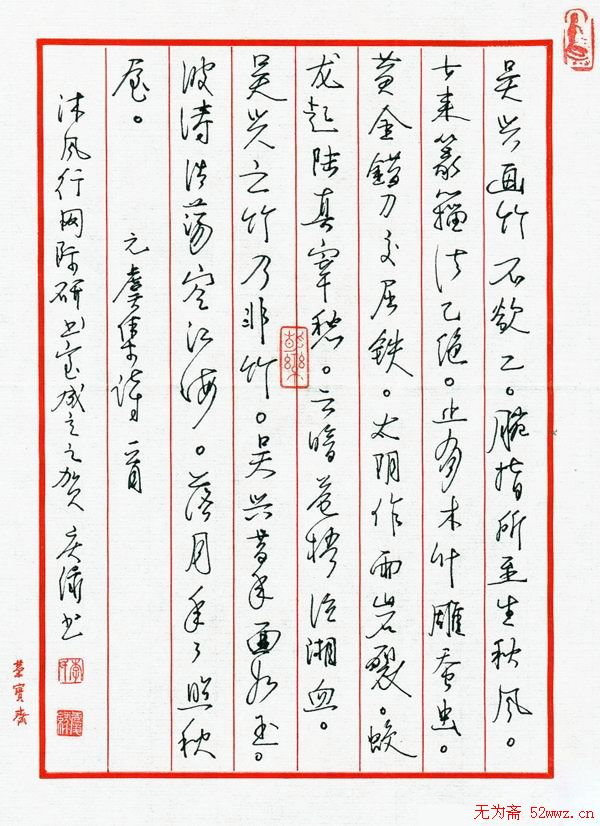 吴兴画竹不欲工。腕指所至生秋风。
古来篆籀法已绝。止有木叶雕蚕虫。
黄金错刀交屈铁。太阴作雨岩裂。蛟
龙起陆真宰愁。云暗苍梧泣湘血。
吴兴之竹乃非竹。吴兴昔年画如玉。
波涛浩荡空江海。落月年々照秋
屋。
元虞集诗一首
沐风行网际研书室成立之贺 庆书
荣宝斋
无为斋 52wwz.cn